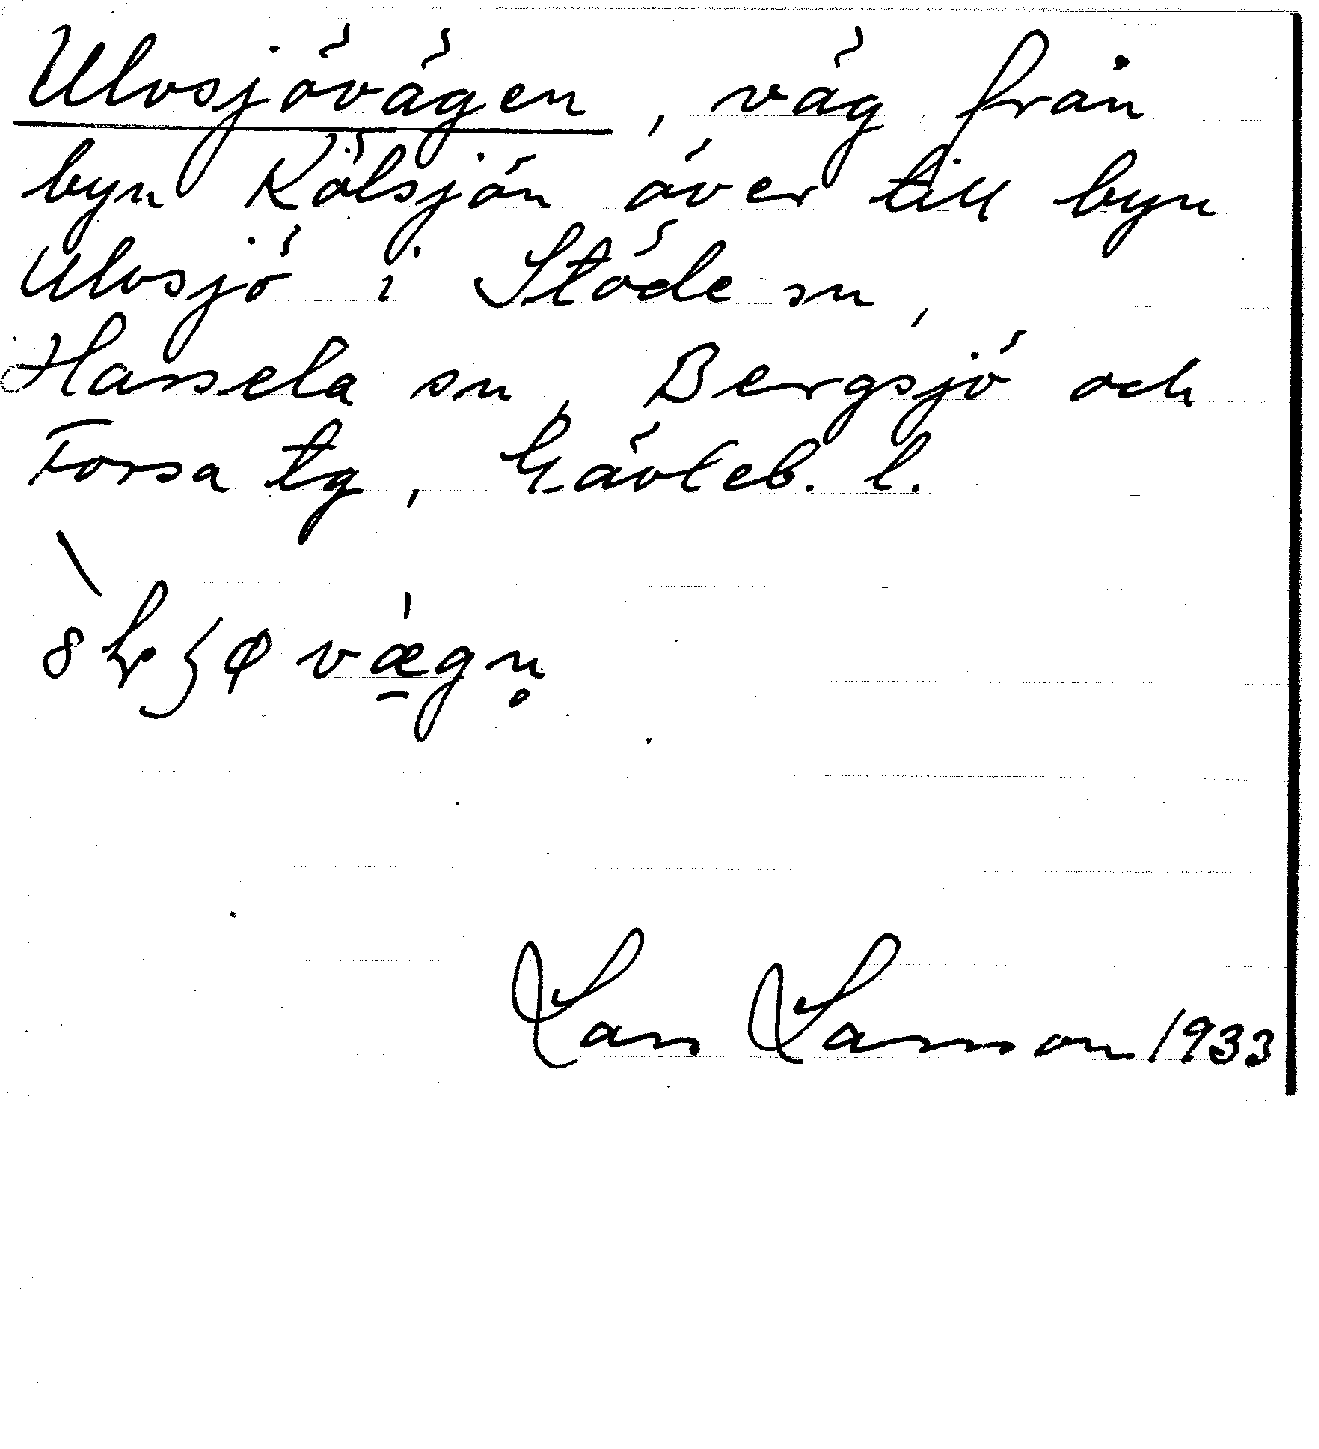 Ulvsjövägen, väg från
byn Kölsjön över till byn
Ulvsjö i Stöde sn,
Hassela sn, Bergsjö och
Forsa tg, Gävleb. l.
Lars Larsson 1933